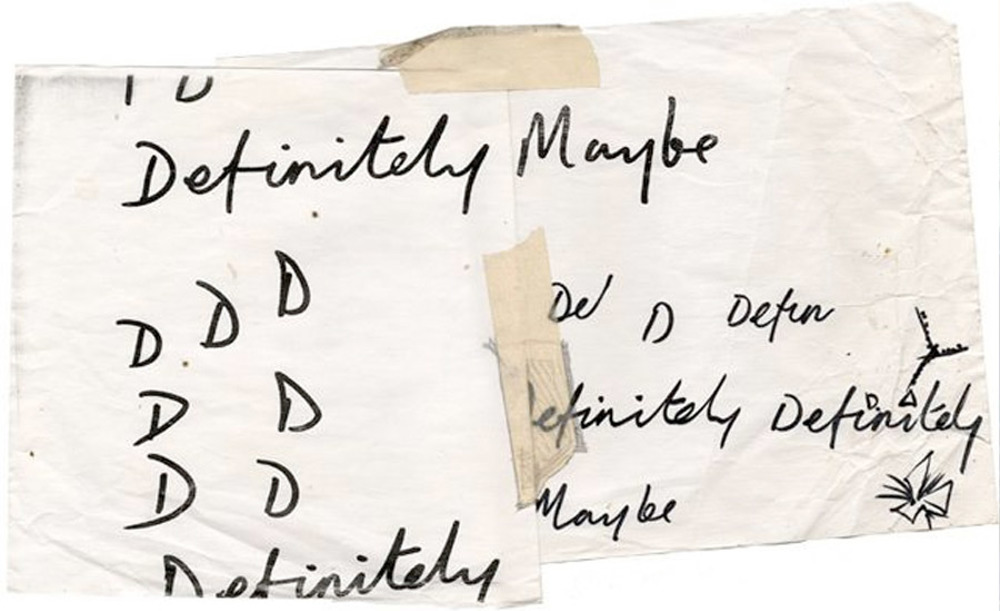 Definitely Maybe
D D D
D D
D D
Definitely
De D Defin
efinitely Definitely
D
Maybe